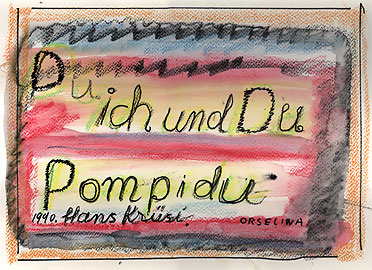 Du ich und Du
Pompidu
1990. Hans Krüsi. ORSELINA